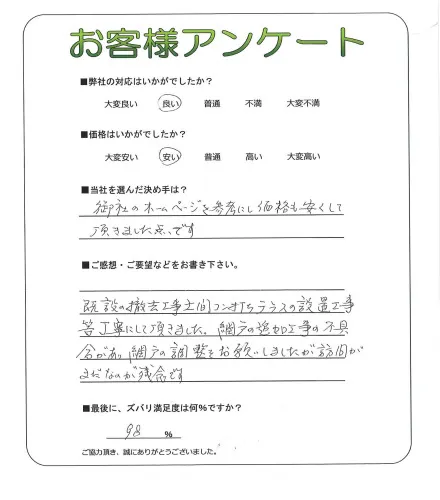 お客様アンケート
■弊社の対応はいかがでしたか？
大変良い 良い 普通 不満 大変不満
■価格はいかがでしたか？
大変安い 安い 普通 高い 大変高い
■当社を選んだ決め手は？
御社のホームページを参考にし価格も安くして
頂きました点です
■ご感想・ご要望などをお書き下さい。
既設の撤去工事土間コン打ちテラスの設置工事
等丁寧にして頂きました。網戸の追加工事の不具
合があり網戸の調整をお願いしましたが訪問が
まだなのが残念です
■最後に、ズバリ満足度は何％ですか？
98 %
ご協力頂き、誠にありがとうございました。